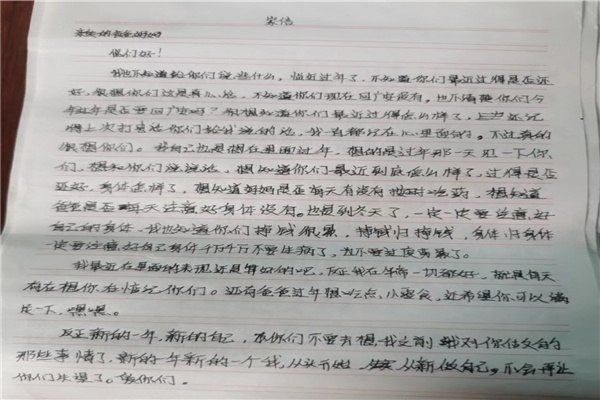 家信
亲爱的爸爸妈妈
你们好!
我也不知道给你们说些什么,临近过年了,不知道你们最近过得是否还
好,很想你们这是真心话,不知道你们现在回广安没有,也不清楚你们今
年过年是否要回广安吗?很想知道你们最近过得怎么样了,上次还记
得上次打电话你们给我说的话,我有都记在心里面的。不过真的
很想你们。我自己也是想在里面过年,想的是过年那一天见一下你
们,想和你们说说话,想知道你们最近到底怎么样了,过得是否
还好,身体怎样了,想知道妈妈是否每天有没有按时吃药,想知道
爸爸是否每天注意好身体没有。也是到冬天了,一定一定要注意好
自己的身体,我也知道你们挣钱很累,挣钱归挣钱,身体归身体
一定要注意好自己身体千万千万不要生病了,也不要过度劳累了。
我最近在里面的表现还是算好的吧,反正我在年前一切都好,就是每天
有在想你在惦记你们。还有爸爸过年想吃点小零食,还希望你可以满
足一下,嘿嘿。
反正新的一年,新的自己,你们不要去想我之前我对你们做的
那些事情了,新的一年新的一个我,从头开始,从新做自己,不会再让
你们失望了。爱你们。